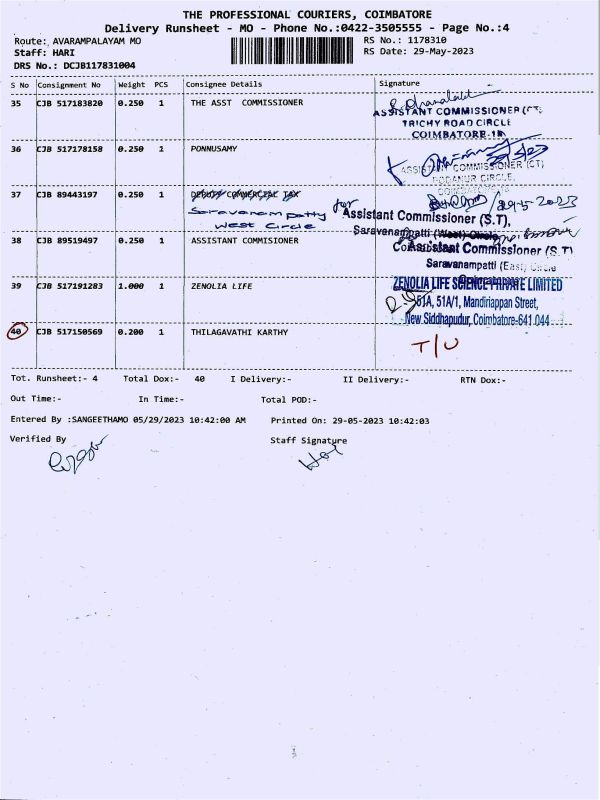 THE PROFESSIONAL COURIERS, COIMBATORE
Delivery Runsheet - MO - Phone No.:0422-3505555 - Page No.:4
Route: AVARAMPALAYAM MO RS No.: 1178310
Staff: HARI RS Date: 29-May-2023
DRS No.: DCJB117831004
S No Consignment No Weight PCS Consignee Details Signature
35 CJB 517183820 0.250 1 THE ASST COMMISSIONER
ASSISTANT COMMISSIONER (CT)
TRICHY ROAD CIRCLE
COIMBATORE-18
36 CJB 517178158 0.250 1 PONNUSAMY
ASSISTANT COMMISSIONER (CT)
PODANUR CIRCLE,
COIMBATORE
37 CJB 89443197 0.250 1 DEPUTY COMMERCIAL TAX
Saravanampatty
West Circle
for
29-5-2023
Assistant Commissioner (S.T),
Saravanampatti (West) Circle
38 CJB 89519497 0.250 1 ASSISTANT COMMISIONER
Assistant Commissioner (S.T)
Saravanampatti (East) Circle
39 CJB 517191283 1.000 1 ZENOLIA LIFE
ZENOLIA LIFE SCIENCE PRIVATE LIMITED
51A, 51A/1, Mandiriappan Street,
New Siddhapudur, Coimbatore-641 044
40 CJB 517150569 0.200 1 THILAGAVATHI KARTHY
T/U
Tot. Runsheet:- 4 Total Dox:- 40 I Delivery:- II Delivery:- RTN Dox:-
Out Time:- In Time:- Total POD:-
Entered By :SANGEETHAMO 05/29/2023 10:42:00 AM Printed On: 29-05-2023 10:42:03
Verified By Staff Signature